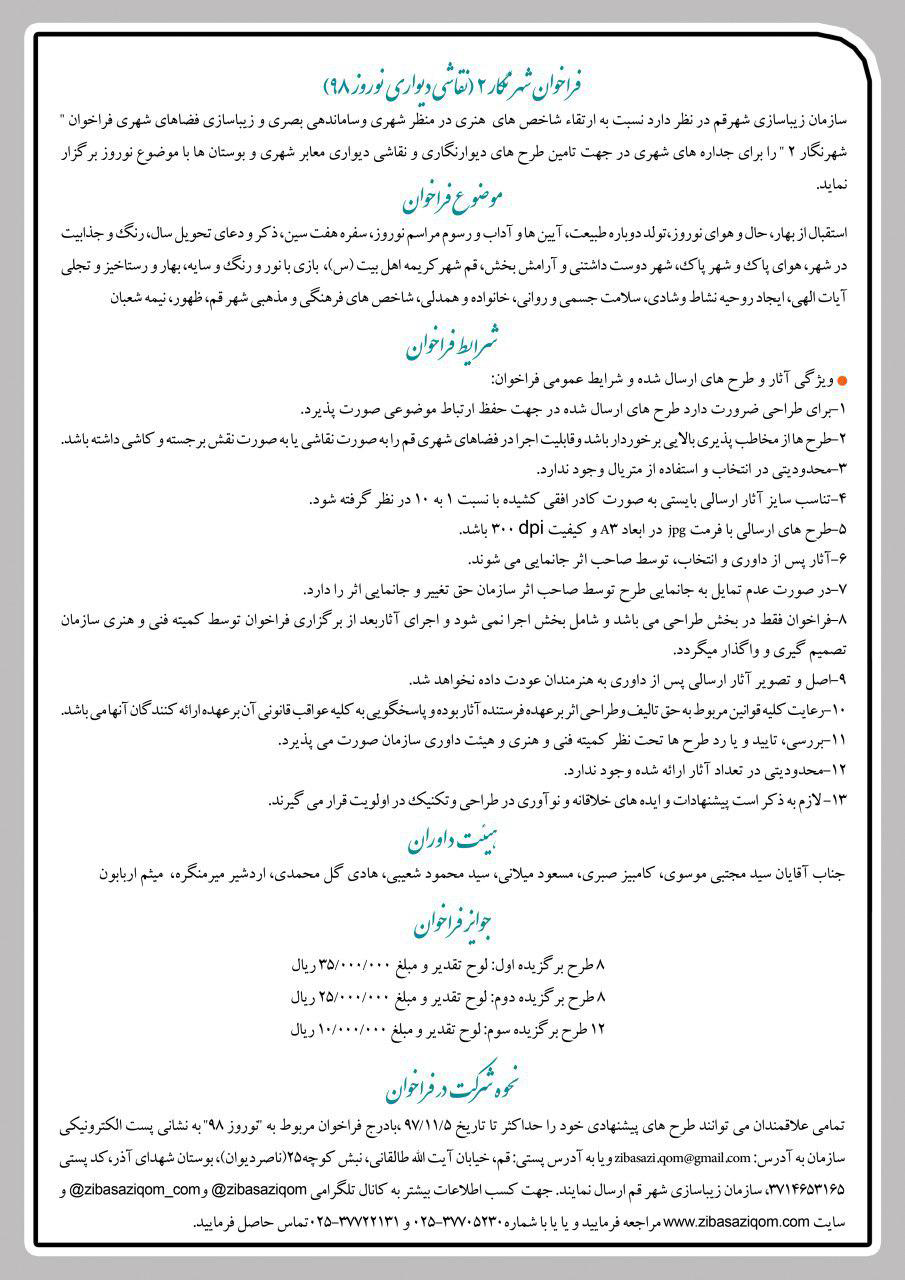 فراخوان شهرنگار ۲ (نقاشی دیواری نوروز ۹۸)
سازمان زیباسازی شهرقم در نظر دارد نسبت به ارتقاء شاخص های هنری در منظر شهری وساماندهی بصری و زیباسازی فضاهای شهری فراخوان "
شهرنگار ۲ " را برای جداره های شهری در جهت تامین طرح های دیوارنگاری و نقاشی دیواری معابر شهری و بوستان ها با موضوع نوروز برگزار
نماید.
موضوع فراخوان
استقبال از بهار، حال و هوای نوروز،تولد دوباره طبیعت، آیین ها و آداب و رسوم مراسم نوروز، سفره هفت سین، ذکر و دعای تحویل سال، رنگ و جذابیت
در شهر، هوای پاک و شهر پاک، شهر دوست داشتنی و آرامش بخش، قم شهر کریمه اهل بیت (س)، بازی با نور و رنگ و سایه، بهار و رستاخیز و تجلی
آیات الهی، ایجاد روحیه نشاط وشادی، سلامت جسمی و روانی، خانواده و همدلی، شاخص های فرهنگی و مذهبی شهر قم، ظهور، نیمه شعبان
شرایط فراخوان
ویژگی آثار و طرح های ارسال شده و شرایط عمومی فراخوان:
۱-برای طراحی ضرورت دارد طرح های ارسال شده در جهت حفظ ارتباط موضوعی صورت پذیرد.
۲-طرح ها از مخاطب پذیری بالایی برخوردار باشد وقابلیت اجرا در فضاهای شهری قم را به صورت نقاشی یا به صورت نقش برجسته و کاشی داشته باشد.
۳-محدودیتی در انتخاب و استفاده از متریال وجود ندارد.
۴-تناسب سایز آثار ارسالی بایستی به صورت کادر افقی کشیده با نسبت ۱ به ۱۰ در نظر گرفته شود.
۵-طرح های ارسالی با فرمت jpg در ابعاد A۳ و کیفیت ۳۰۰ dpi باشد.
۶-آثار پس از داوری و انتخاب، توسط صاحب اثر جانمایی می شوند.
۷-در صورت عدم تمایل به جانمایی طرح توسط صاحب اثر سازمان حق تغییر و جانمایی اثر را دارد.
۸-فراخوان فقط در بخش طراحی می باشد و شامل بخش اجرا نمی شود و اجرای آثاربعد از برگزاری فراخوان توسط کمیته فنی و هنری سازمان
تصمیم گیری و واگذار میگردد.
۹-اصل و تصویر آثار ارسالی پس از داوری به هنرمندان عودت داده نخواهد شد.
۱۰-رعایت کلیه قوانین مربوط به حق تالیف وطراحی اثر برعهده فرستنده آثار بوده و پاسخگویی به کلیه عواقب قانونی آن برعهده ارائه کنندگان آنها می باشد.
۱۱-بررسی، تایید و یا رد طرح ها تحت نظر کمیته فنی و هنری و هیئت داوری سازمان صورت می پذیرد.
۱۲-محدودیتی در تعداد آثار ارائه شده وجود ندارد.
۱۳-لازم به ذکر است پیشنهادات و ایده های خلاقانه و نوآوری در طراحی وتکنیک در اولویت قرار می گیرند.
هیئت داوران
جناب آقایان سید مجتبی موسوی، کامبیز صبری، مسعود میلانی، سید محمود شعیبی، هادی گل محمدی، اردشیر میرمنگره، میثم اربابون
جوایز فراخوان
۸ طرح برگزیده اول: لوح تقدیر و مبلغ ۳۵/۰۰۰/۰۰۰ ریال
۸ طرح برگزیده دوم: لوح تقدیر و مبلغ ۲۵/۰۰۰/۰۰۰ ریال
۱۲ طرح برگزیده سوم: لوح تقدیر و مبلغ ۱۰/۰۰۰/۰۰۰ ریال
نحوه شرکت در فراخوان
تمامی علاقمندان می توانند طرح های پیشنهادی خود را حداکثر تا تاریخ ۹۷/۱۱/۵ ،بادرج فراخوان مربوط به "نوروز ۹۸" به نشانی پست الکترونیکی
سازمان به آدرس: zibasazi.qom@gmail.com و یا به آدرس پستی: قم، خیابان آیت الله طالقانی، نبش کوچه۲۵(ناصردیوان)، بوستان شهدای آذر،کد پستی
۳۷۱۴۶۵۳۱۶۵، سازمان زیباسازی شهر قم ارسال نمایند. جهت کسب اطلاعات بیشتر به کانال تلگرامی @zibasaziqom و@zibasaziqom_com و
سایت www.zibasaziqom.com مراجعه فرمایید و یا یا با شماره ۳۷۷۰۵۲۳۰-۰۲۵ و ۳۷۷۲۲۱۳۱-۰۲۵تماس حاصل فرمایید.